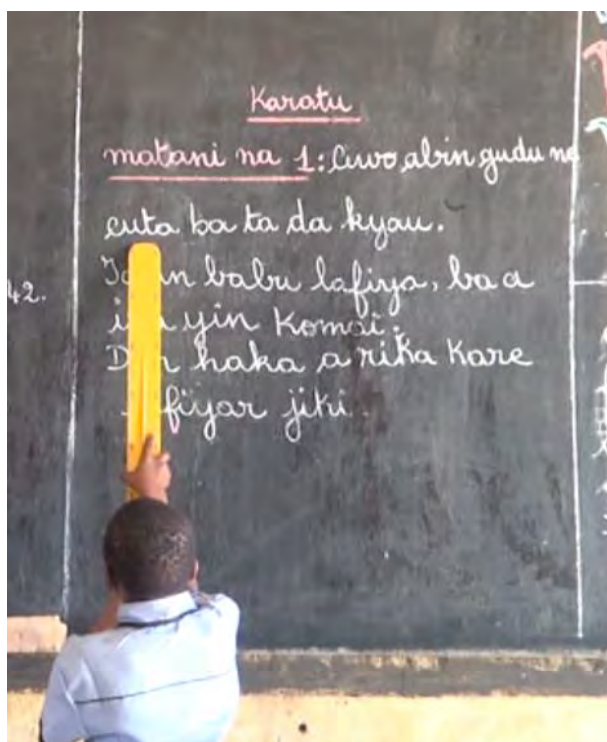 Karatu
matani na 1: Ciwo abin gudu ne
cuta ba ta da kyau.
42.
babu lafiya, ba a
yin Komai.
haka a rika Kare
jiki.